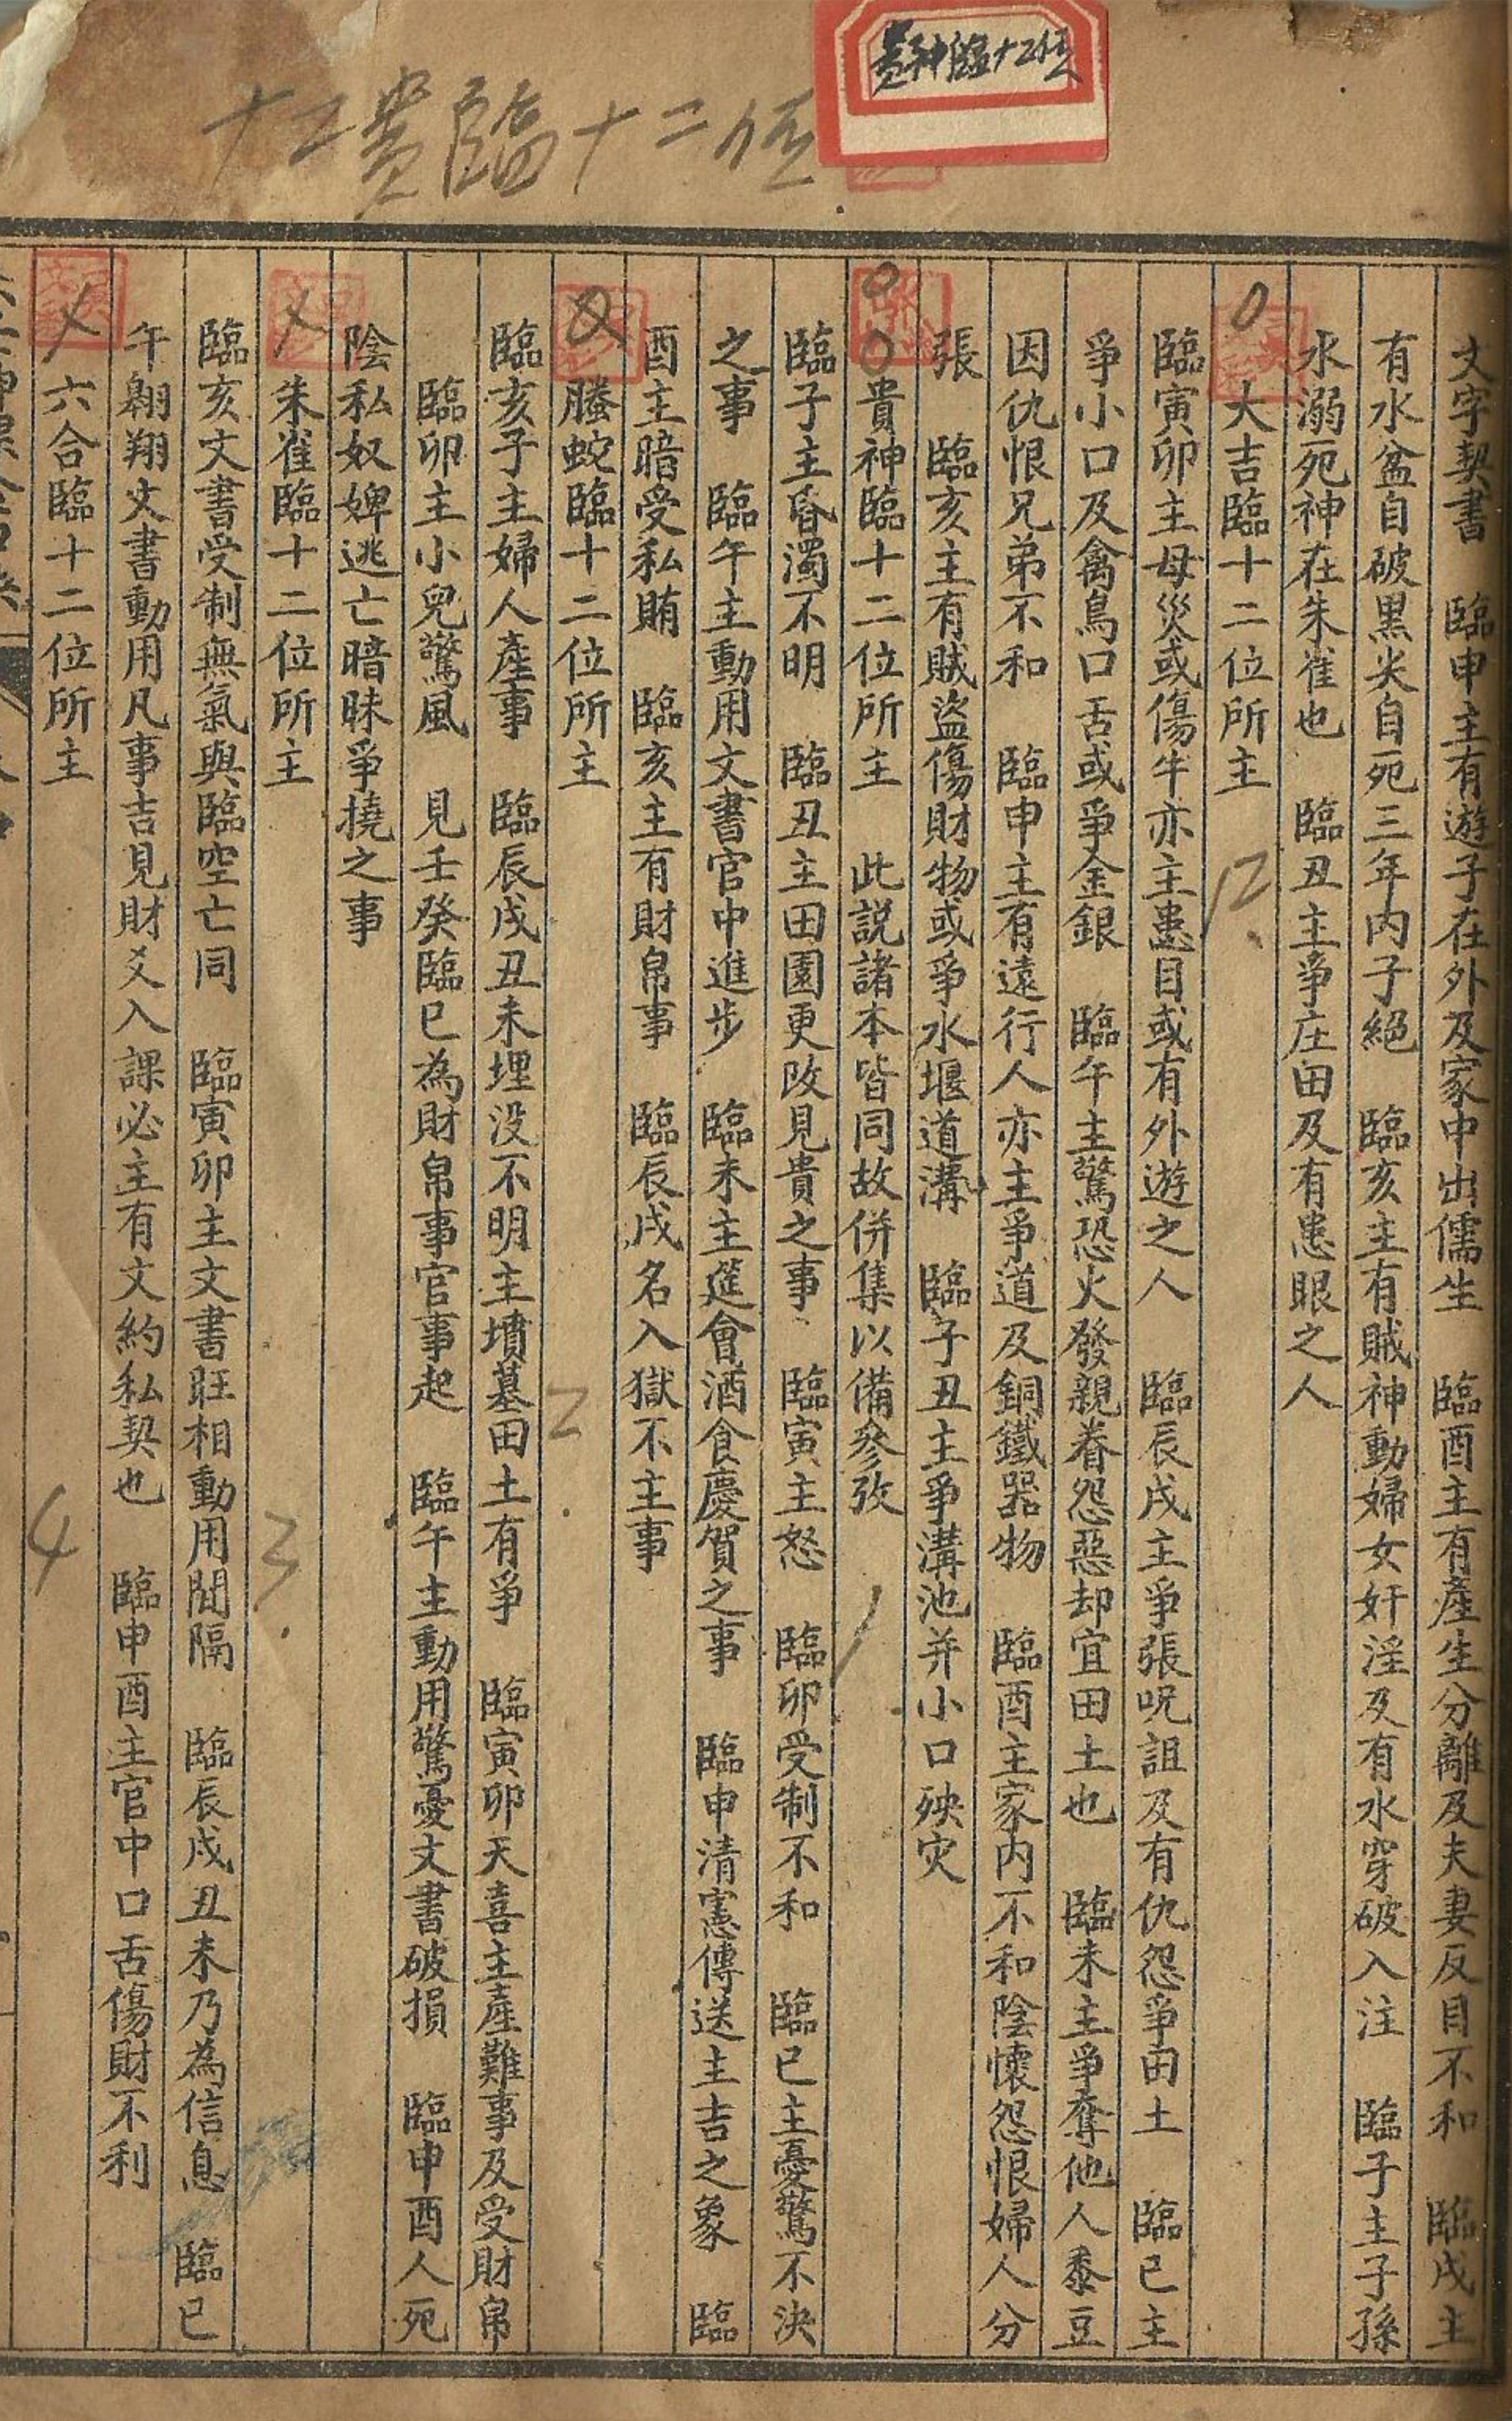 貴神臨十二位
十二貴臨十二位
文字契書　臨申主有遊子在外及家中出儒生　臨酉主有產生分離及夫妻反目不和　臨戌主
有水盆自破黑犬自死三年内子絕　臨亥主有賊神動婦女奸淫及有水穿破入注　臨子主子孫
水溺死神在朱雀也　臨丑主爭庄田及有患眼之人
大吉臨十二位所主
12
臨寅卯主母災或傷牛亦主患目或有外遊之人　臨辰戌主爭張呪詛及有仇怨爭田土　臨巳主
爭小口及禽鳥口舌或爭金銀　臨午主驚恐火發親眷怨惡却宜田土也　臨未主爭奪他人黍豆
因仇恨兄弟不和　臨申主有遠行人亦主爭道及銅鐵器物　臨酉主家内不和陰懷怨恨婦人分
張　臨亥主有賊盜傷財物或爭水堰道溝　臨子丑主爭溝池并小口殃灾
貴神臨十二位所主　此説諸本皆同故併集以備參攷
1
臨子主昏濁不明　臨丑主田園更改見貴之事　臨寅主怒　臨卯受制不和　臨巳主憂驚不決
之事　臨午主動用文書官中進步　臨未主筵會酒食慶賀之事　臨申清憲傳送主吉之象　臨
酉主暗受私賄　臨亥主有財帛事　臨辰戌名入獄不主事
螣蛇臨十二位所主
2
臨亥子主婦人產事　臨辰戌丑未埋没不明主墳墓田土有爭　臨寅卯天喜主產難事及受財帛
臨卯主小兒驚風　見壬癸臨巳為財帛事官事起　臨午主動用驚憂文書破損　臨申酉人死
陰私奴婢逃亡暗昧爭撓之事
朱雀臨十二位所主
3
臨亥文書受制無氣與臨空亡同　臨寅卯主文書旺相動用間隔　臨辰戌丑未乃為信息　臨巳
午翱翔文書動用凡事吉見財爻入課必主有文約私契也　臨申酉主官中口舌傷財不利
六合臨十二位所主
4